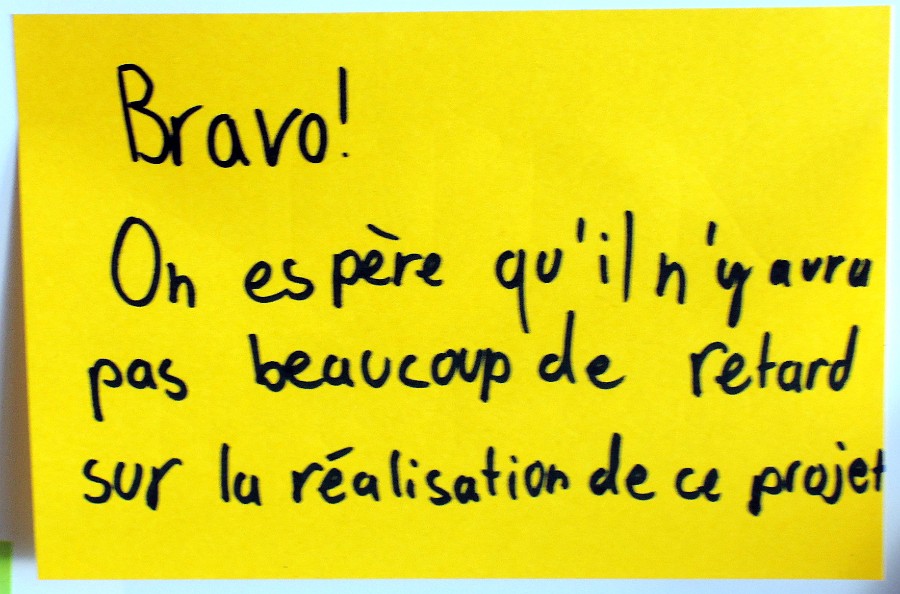 Bravo!
On espère qu'il n'y avra
pas beaucoup de retard
sur la réalisation de ce projet